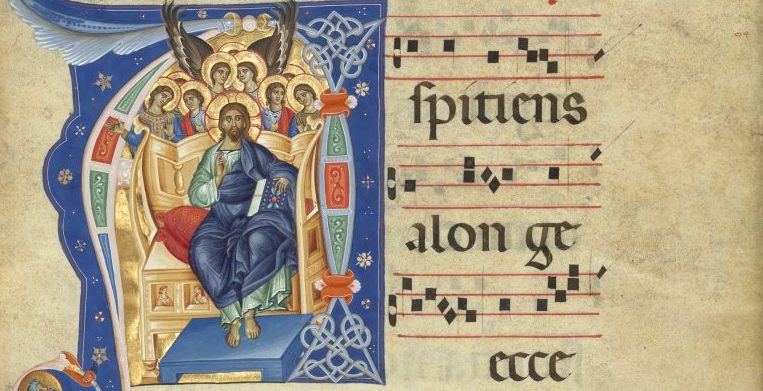 spitiens
a lon ge
ecce